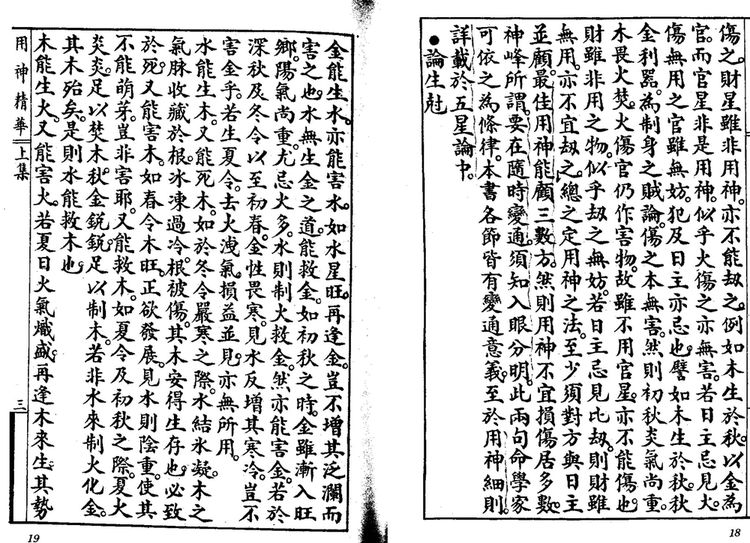 傷之。財星雖非用神。亦不能刼之。例如木生於秋。以金為
官。而官星非是用神。似乎火傷之亦無害。若日主忌見火。
傷無用之官雖無妨。犯及日主亦忌也。譬如木生於秋。秋
金利器。為制身之賊。論傷之本無害。然則初秋炎氣尚重。
木畏火焚。火傷官仍作害物。故雖不用官星。亦不能傷也
財雖非用之物。似乎刼之無妨。若日主忌見比刼。則財雖
無用。亦不宜刼之。總之定用神之法。至少須對方與日主
並顧。最佳用神能顧三數方。然則用神不宜損傷居多數。
神峰所謂。要在隨時變通。須知入眼分明。此兩句命學家
可依之為條律。本書各節皆有變通意義。至於用神細則
詳載於五星論中。
●論生尅
18
金能生水。亦能害水。如水星旺。再逢金。豈不增其泛瀾而
害之也。木無生金之道。能救金。如初秋之時。金雖漸入旺
鄉。陽氣尚重。尤忌火多。水則制火救金。然亦能害金。若於
深秋及冬令。以至初春。金性畏寒。見水反增其寒冷。豈不
害金乎。若生夏令。去火洩氣。損益並見。亦無所用。
水能生木。又能死木。如於冬令嚴寒之際。水結氷凝。木之
氣脉收藏於根。氷凍過冷。根被傷。其木安得生存也。必致
於死。又能害木。如春令木旺。正欲發展。見水則陰重。使其
不能萌芽。豈非害耶。又能救木。如夏令及初秋之際。夏火
炎炎。足以焚木。秋金銳銳。足以制木。若非水來制火化金。
其木殆矣。是則水能救木也
木能生火。又能害火。若夏日火氣熾盛。再逢木來生。其勢
用神精華 上集
三
19